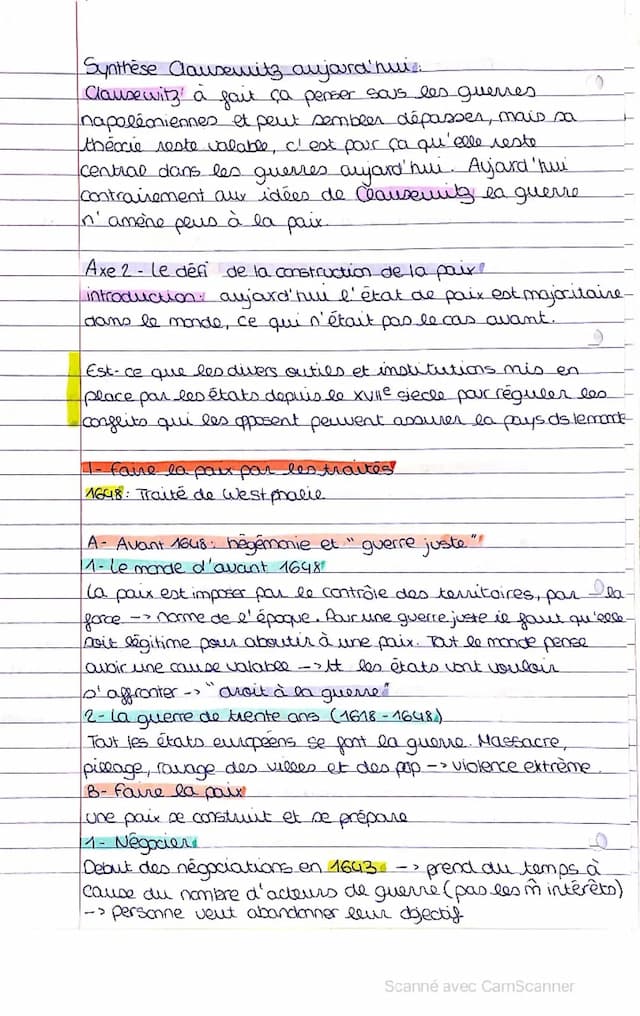 Synthèse Clausewitz aujourd'hui:
Clausewitz à fait ça penser sous les guerres
napoléoniennes et peut sembler dépasser, mais sa
théorie reste valable, c'est pour ça qu'elle reste
central dans les guerres aujourd'hui. Aujourd'hui
contrairement aux idées de Clausewitz la guerre
n'amène plus à la paix.
Axe 2 - Le défi de la construction de la paix
introduction: aujourd'hui l'état de paix est majoritaire
dans le monde, ce qui n'était pas le cas avant.
Est-ce que les divers outils et institutions mis en
place par les états depuis le XVIIe siecle pour réguler les
conflits qui les opposent peuvent assurer la pays ds le monde
I- Faire la paix par les traités
1648: Traité de Westphalie
A- Avant 1648: hégémonie et "guerre juste"
1- Le monde d'avant 1648
La paix est imposer par le contrôle des territoires, par la
force -> norme de l'époque. Pour une guerre juste il faut qu'elle
soit légitime pour aboutir à une paix. Tout le monde pense
avoir une cause valable -> tt les états vont vouloir
s'affronter -> "droit à la guerre"
2- La guerre de trente ans (1618-1648)
Tout les états européens se font la guerre. Massacre,
pillage, ravage des villes et des pop -> violence extrême.
B- Faire la paix
une paix se construit et se prépare
1- Négocier
Debut des négociations en 1643 -> prend du temps à
cause du nombre d'acteurs de guerre (pas les m̂ intérêts)
-> personne veut abandonner leur objectif
Scanné avec CamScanner